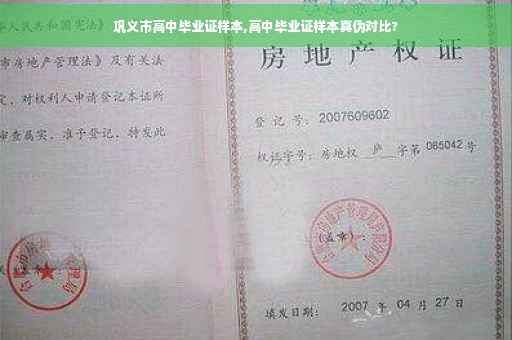 巩义市高中毕业证样本,高中毕业证样本真伪对比?
人民共和国宪法》及
市房地产管理法》及有关
定，对权利人申请登记本证所
审查属实，准予登记，特发此
房地产权证
登记号：2007609602
权证字号：房地权 庐 字第 085042 号
（盖章）：
填发日期： 2007 年 04 月 27 日